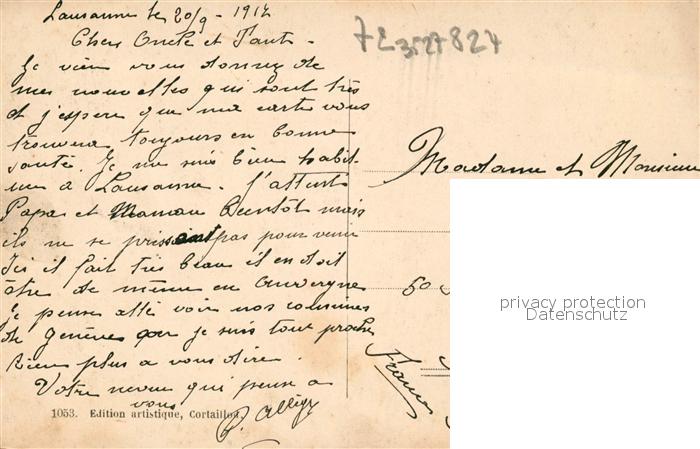 Lausanne le 20/9 - 1912
72 3527 824
Cher Oncle et Tante -
Je vien vous donnez de
mes nouvelles qui sont très
et j'espere que ma carte vous
trouvera toujours en bonne
santé. Je me suis bien habit
uer à Lausanne. J'attent
Papa et Maman bientôt mais
ils ne se pas pour venir
Ici il fait très beau il en doit
être de même en Auvergne
Je pense allé voir nos cousines
de Genève que je suis tout proche
Rien plus a vous dire.
Votre neveu qui pense a
vous
Madame et Monsieur
50
France
1053. Edition artistique, Cortaillod
privacy protection
Datenschutz